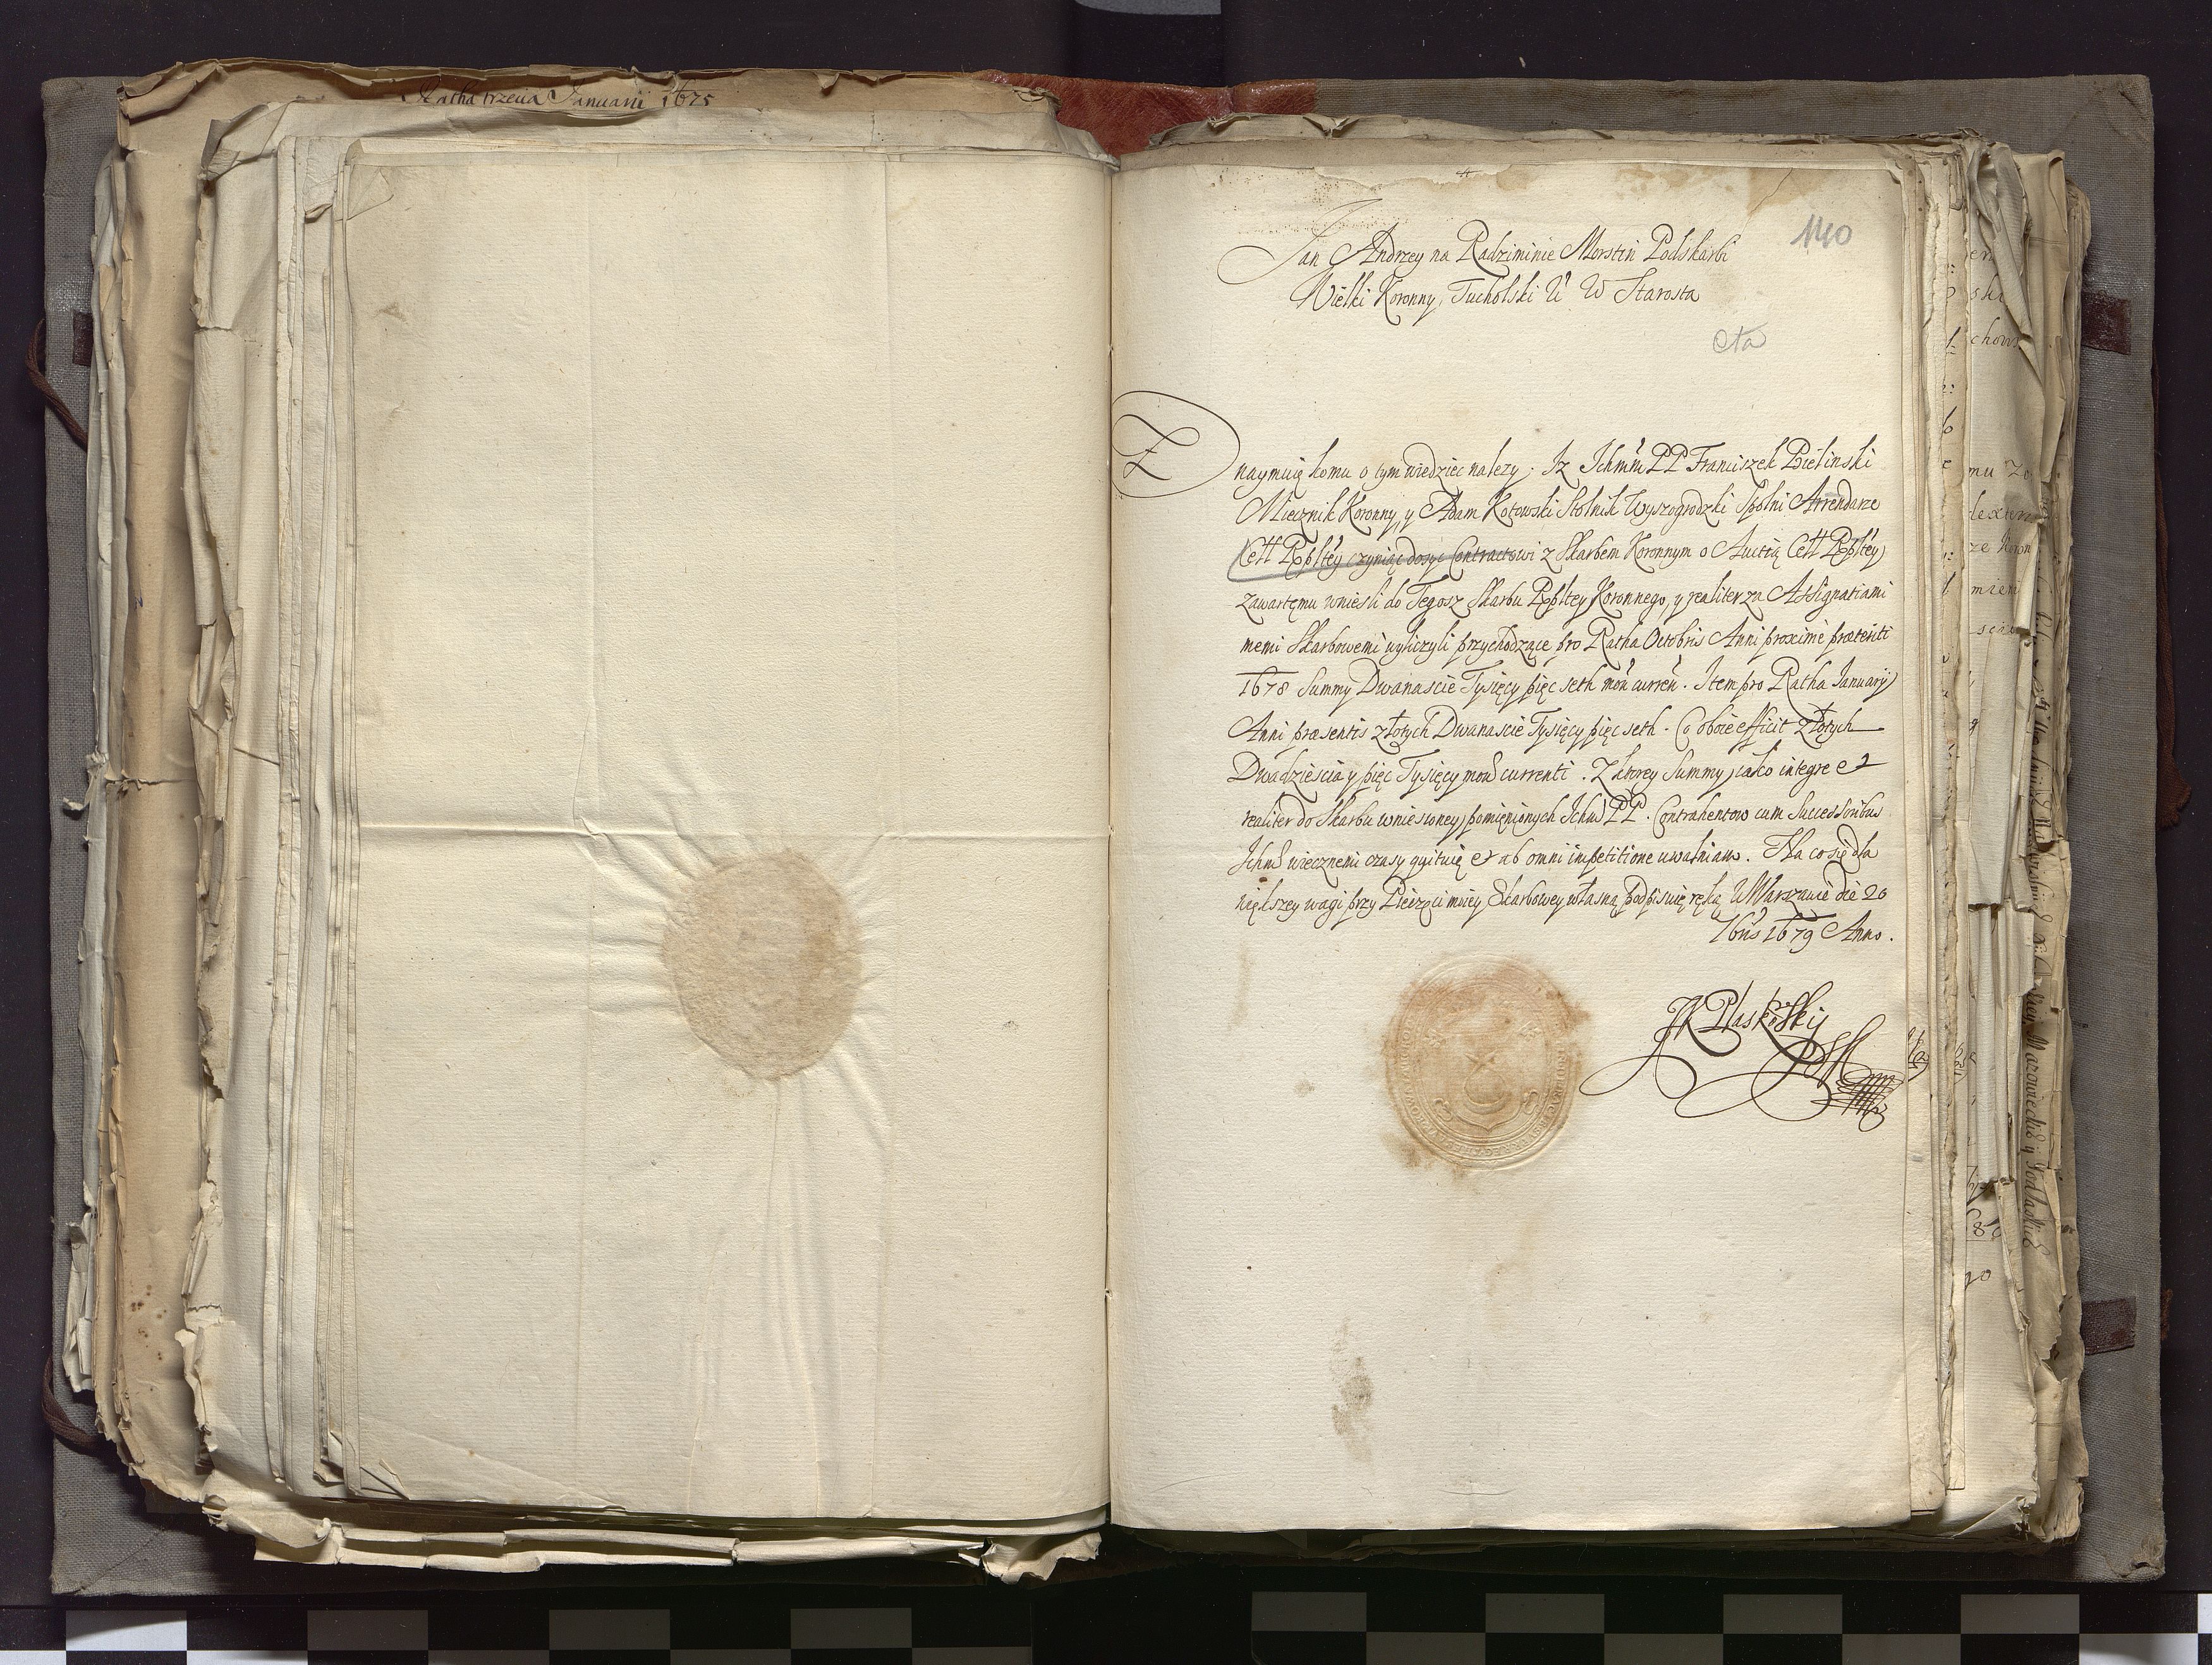 Ratha trzecia Januarii 1675
140
Jan Andrzey na Radziminie Morstin Podskarbi
Wielki Koronny, Tucholski &c W Starosta
cta
Znaymuię komu o tym wiedziec nalezy; Iz Ichmm PP Franciszek Bielinski
Miecznik Koronny, y Adam Kotowski Stolnik Wyszogrodzki Spolni Arrendarze
Cell Rptey czyniąc dosyc Contractowi z Skarbem Koronnym o Auctią Cell Rptey
zawartemu wniesli do Tegosz Skarbu Rptey Koronnego, y realiter za Assignatiami
memi Skarbowemi wyliczyli przychodzące pro Ratha Octobris Anni proximè præteriti
1678 Summy Dwanascie Tysięcy pięc seth mon curren. Item pro Ratha January
Anni præsentis złotych Dwanascie Tysięcy pięc seth. Co oboie efficit Złotych
Dwadziescia y pięc Tysięcy mon currenti. Z ktorey Summy, iako integre et
realiter do Skarbu wniesioney, pomięnionych Ichm PP. Contrahentow cum Successoribus
Ichm wiecznemi czasy qvituię et ab omni impetitione uwalniam. Na co się dla
większey wagi przy Pieczęci moiey Skarbowey własną podpisuię ręką. W Warszawie die 20
7bris 1679 Anno.
JK Plaskowskij